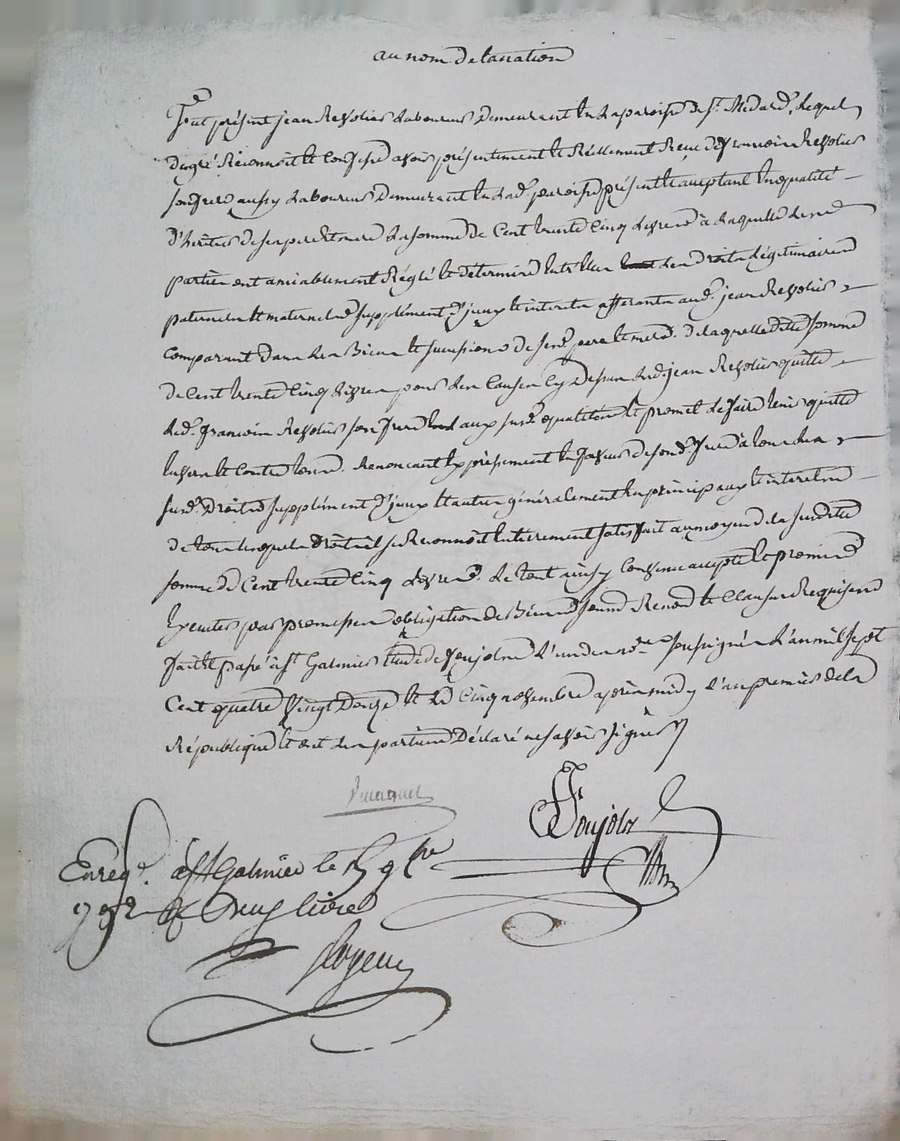 au nom de la nation
fut présent jean Reynier Laboureur Demeurant en La paroisse de St. Medard, Lequel
De gré Reconnoit et Confesse avoir présentement et Réellement Reçu de francoise
son frere aussy Laboureur Demeurant en Lad. paroisse présent et acceptant en qualité
d'héritier de ses pere et mere La somme de Cent trente Cinq Livres à Laquelle Les
parties ont amiablement Réglé et déterminé entr'eux Les Droits Légitimaires
paternels et maternels supplément d'iceux et interets afferants aud. jean
Comparant dans Les Biens et successions de ses pere et mere. De laquelle ditte somme
de Cent trente Cinq Livres pour Les Causes Cy Dessus Led. jean quitte
Led. francois son frere aux susd. qualités et promet de faire tenir quitte
envers et Contre tous. Renoncant Expressement en faveur de sond. frere à tous Les
susd. Droits supplément d'iceux et autres généralement en principaux et interets
de tous Lesquels Droits il se Reconnoit entierement satisfait au moyen de la susditte
somme de Cent trente Cinq Livres. Le tout ainsy Convenu accepté et promis
Executer par promesses obligation de Biens soumis. Renon. et Clauses Requises
fait et passé à St. Galmier Etude de Soujolz L'un des nores. soussignés L'an mil sept
Cent quatre Vingt Douze et Le Cinq novembre après midy L'an premier de la
République et ont Les parties Déclaré ne savoir signer
Soujolz
Enreg. à St Galmier le 15 9bre
1792 Reçu livres